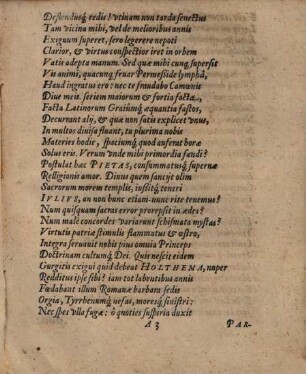 Defendusq́ redis! vtinam non tarda senectus
Tam vicina mihi, vel de melioribus annis
Exiguum superet, sero legerere nepoti
Clarior, & virtus conspectior iret in orbem
Vatis adepta manum. Sed quæ mihi cunq́ supersit
Vis animi, quacunq́ fruar Permeßide lymphâ,
Haud ingratus ero: nec te fraudabo Camœnis
Diue meis. seriem maiorum & fortia facta,
Facta Latinorum Graiûmq́ æquantia fastos,
Decurrant alij, & quæ non satis explicet vnus,
In multos diuisa fluant, tu plurima nobis
Materies hodie, spaciumq́ quod auferat horæ
Solus eris. Verum vnde mihi primordia fandi?
Postulat hæc PIETAS, consummatusq́ supernæ
Relligionis amor. Diuus quem sanctæ olim
Sacrorum morem templis, iussitq́ teneri
IVLIVS, an non hunc etiam-nunc rite tenemus?
Num quisquam sacras error prorepsit in ædes?
Num male concordes variarunt schismata mystas?
Virtutis patriæ stimulis flammatus & œstro,
Integra seruauit nobis pius omnia Princeps
Doctrinam cultumq́ Dei. Quis nescit eidem
Gurgitis exigui quid debeat HOLTHEMA, nuper
Redditus ipse sibi? iam tot labentibus annis
Fœdabant illum Romanæ barbara sedis
Orgia, Tyrrhenumq́ nefas, moresq́ sinistri:
Nec spes vlla fugæ: ô quoties suspiria duxit
A 3
PAR-